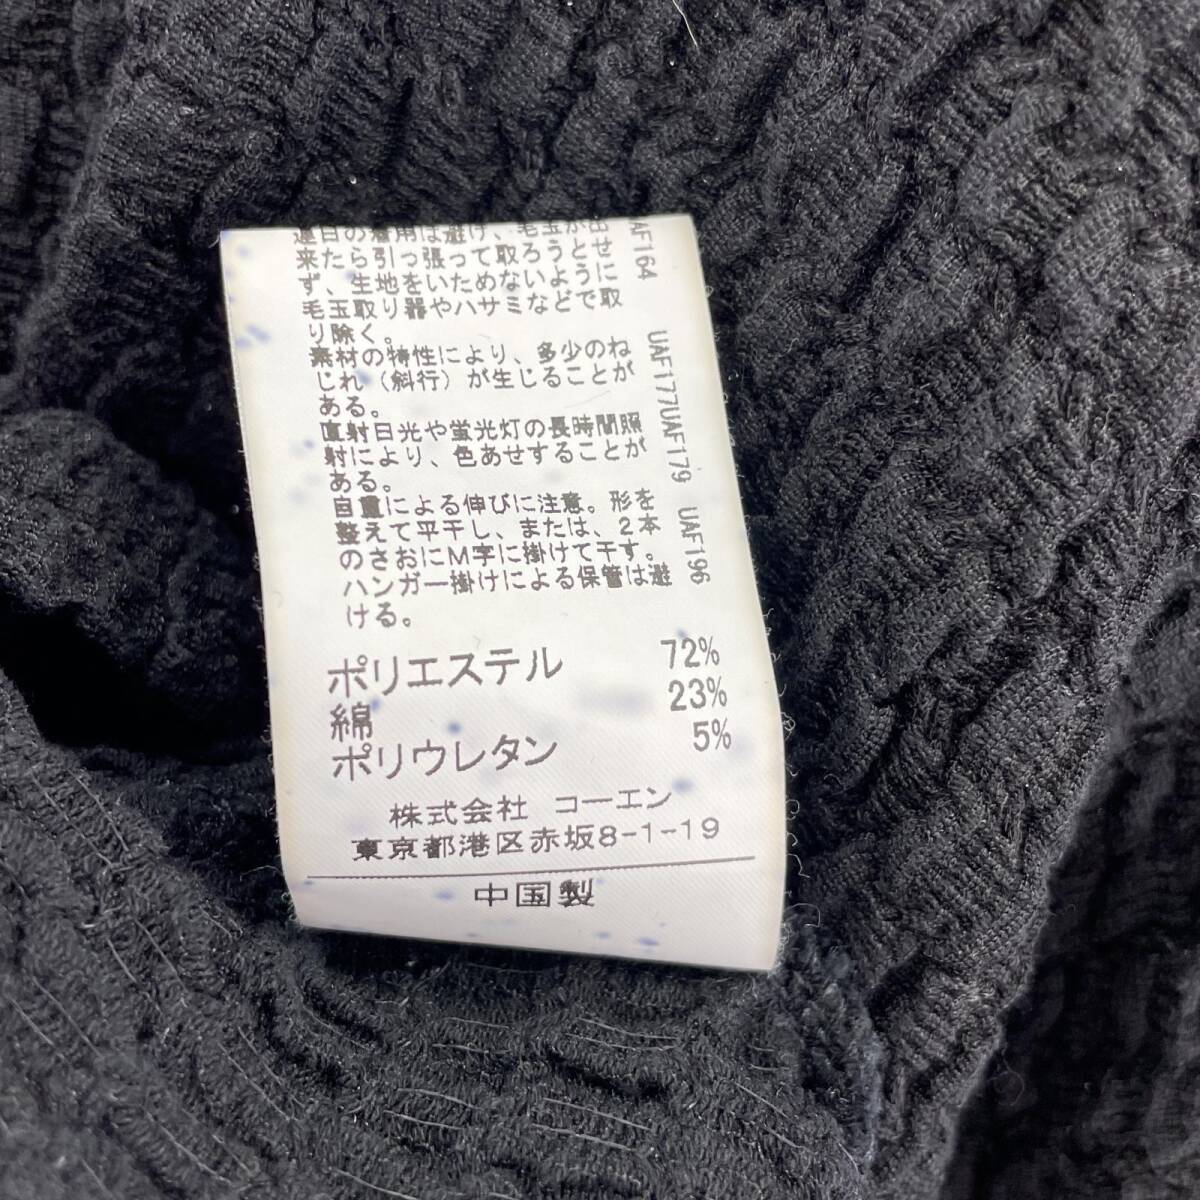 連日の着用は避け、毛玉が出
来たら引っ張って取ろうとせ
ず、生地をいためないように
毛玉取り器やハサミなどで取
り除く。
素材の特性により、多少のね
じれ（斜行）が生じることが
ある。
直射日光や蛍光灯の長時間照
射により、色あせすることが
ある。
自重による伸びに注意。形を
整えて平干し、または、2本
のさおにM字に掛けて干す。
ハンガー掛けによる保管は避
ける。
UAF164
UAF177UAF179
UAF196
ポリエステル 72%
綿 23%
ポリウレタン 5%
株式会社 コーエン
東京都港区赤坂8-1-19
中国製